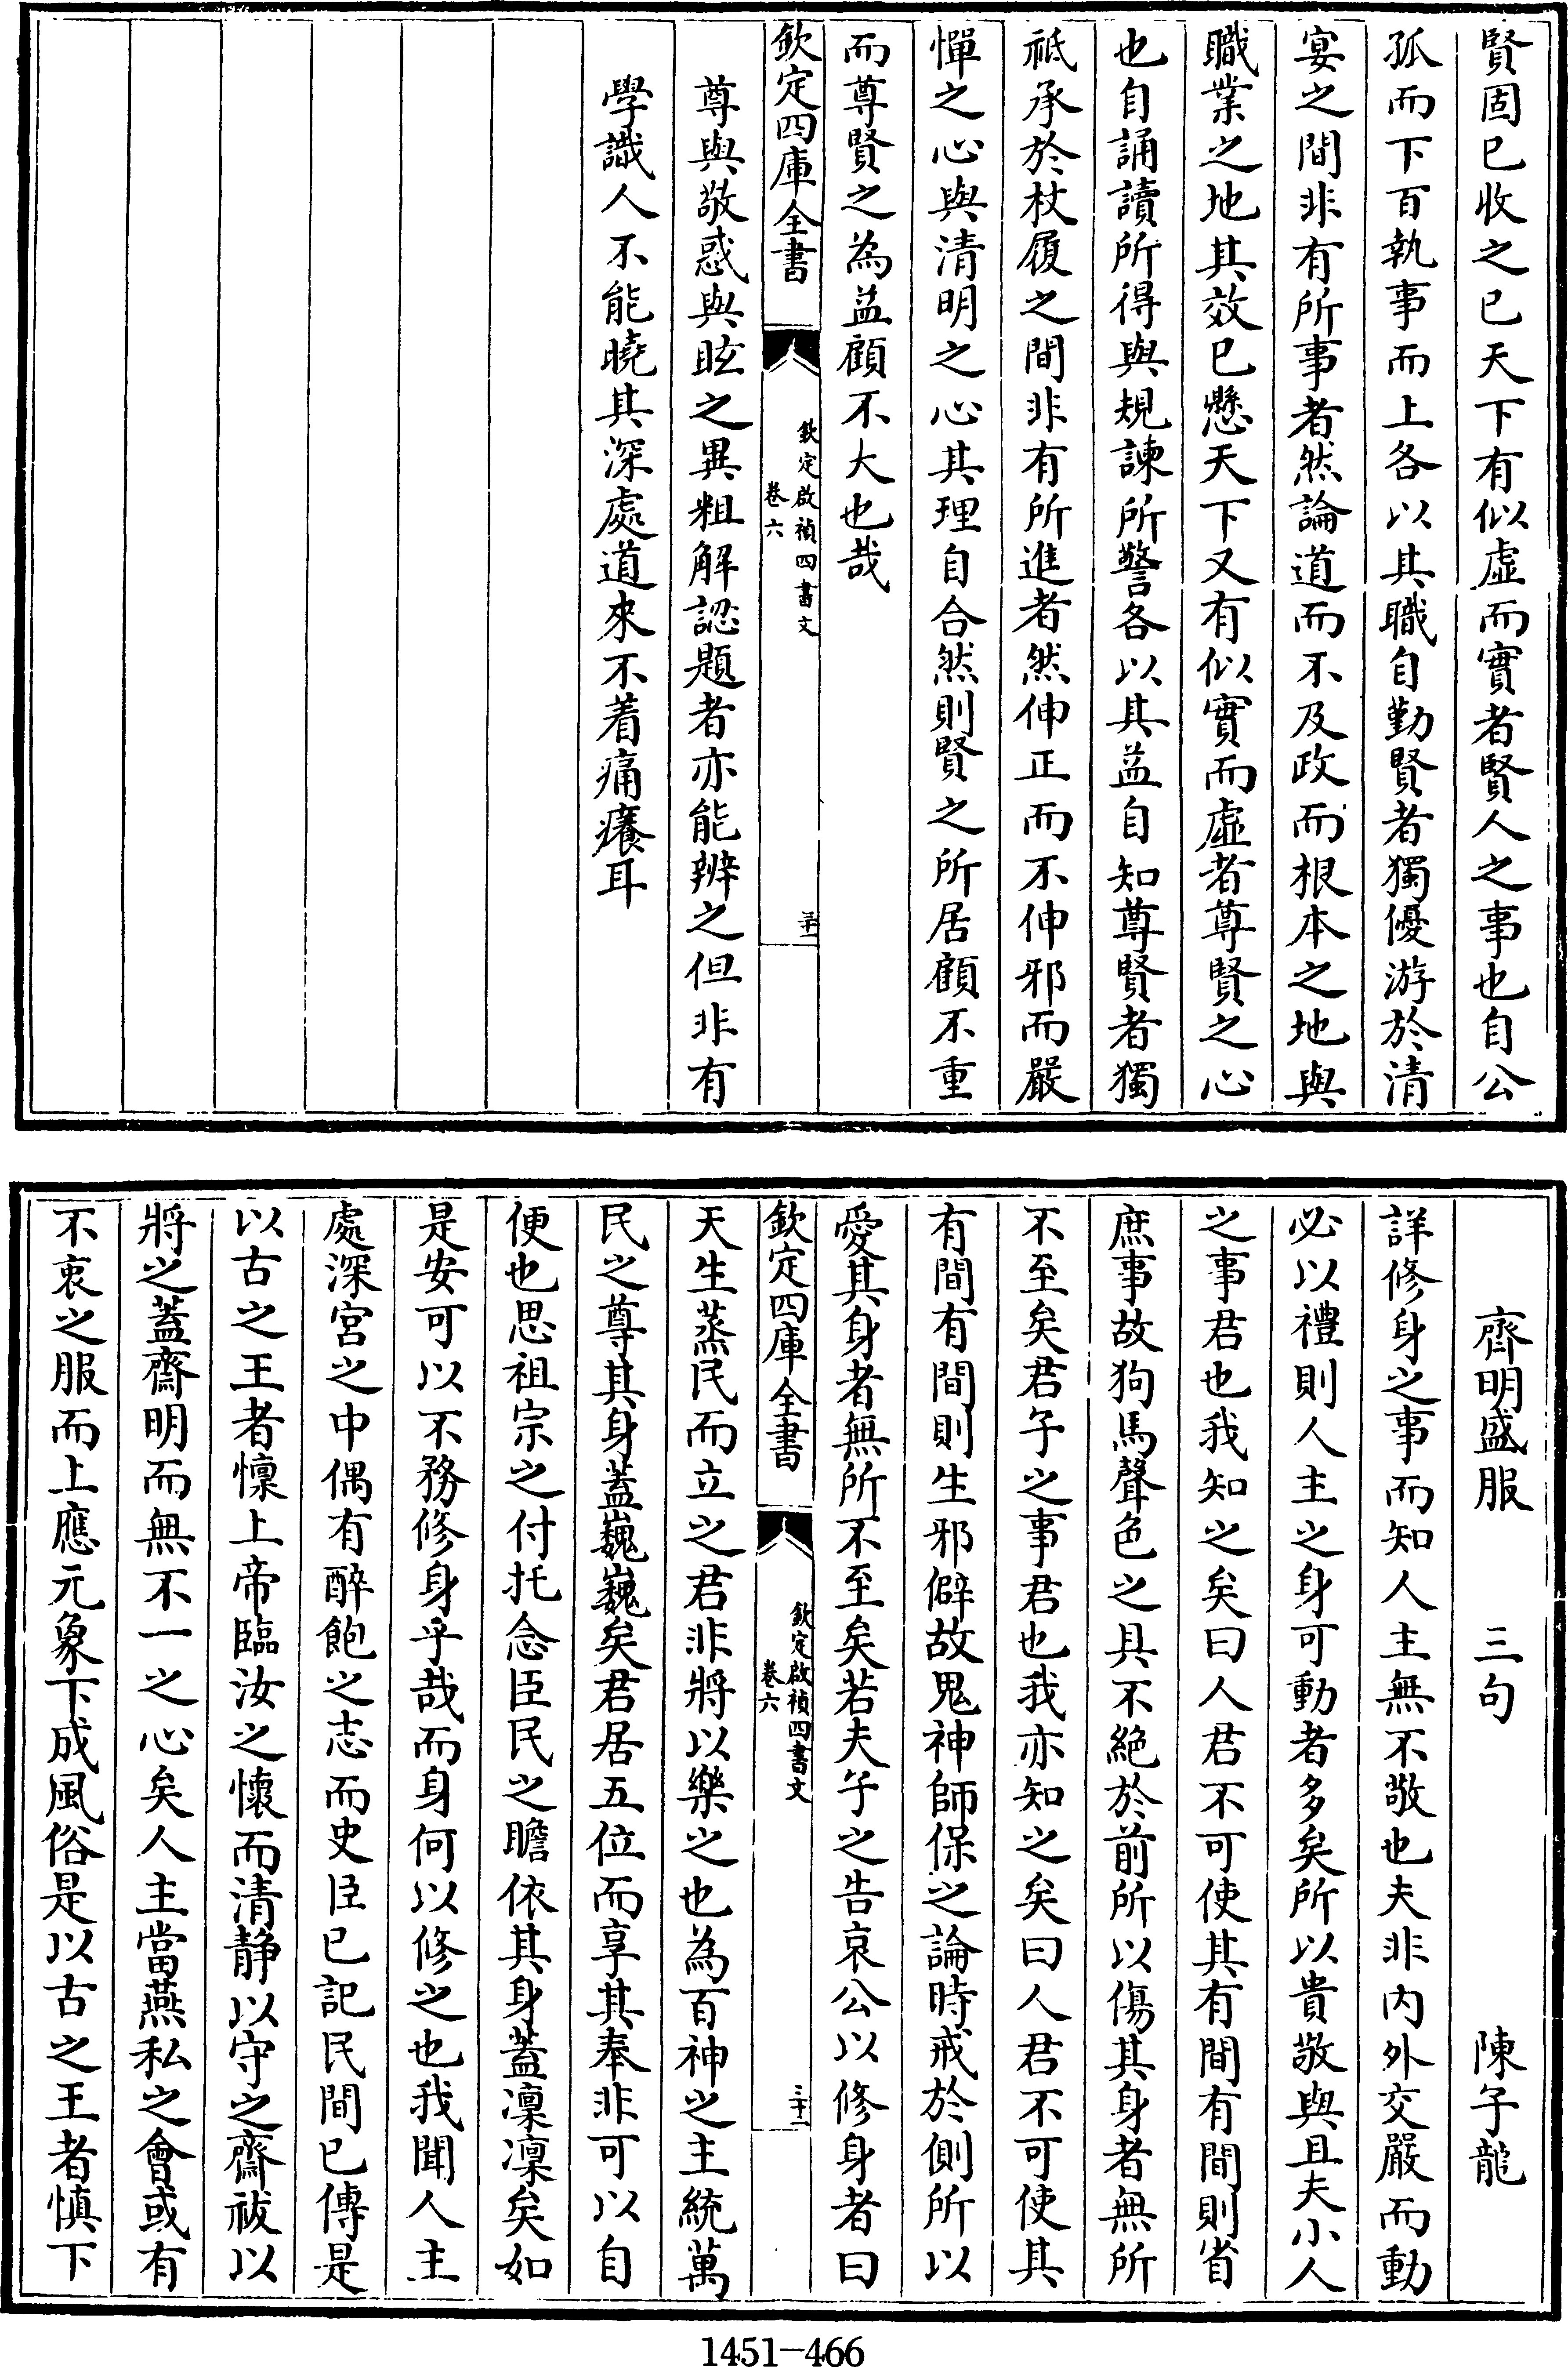 賢固已收之已天下有似虛而實者賢人之事也自公
孤而下百執事而上各以其職自勤賢者獨優游於清
宴之間非有所事者然論道而不及政而根本之地與
職業之地其效已懸天下又有似實而虛者尊賢之心
也自誦讀所得與規諫所警各以其益自知尊賢者獨
祗承於杖履之間非有所進者然伸正而不伸邪而嚴
憚之心與清明之心其理自合然則賢之所居顧不重
而尊賢之為益顧不大也哉
欽定四庫全書
欽定啟禎四書文
卷六
三十一
尊與敬惑與眩之異粗解認題者亦能辨之但非有
學識人不能曉其深處道來不着痛癢耳
齊明盛服 三句 陳子龍
詳修身之事而知人主無不敬也夫非內外交嚴而動
必以禮則人主之身可動者多矣所以貴敬與且夫小人
之事君也我知之矣曰人君不可使其有間有間則省
庶事故狗馬聲色之具不絕於前所以傷其身者無所
不至矣君子之事君也我亦知之矣曰人君不可使其
有間有間則生邪僻故鬼神師保之論時戒於側所以
愛其身者無所不至矣若夫子之告哀公以修身者曰
欽定四庫全書
欽定啟禎四書文
卷六
三十一
天生蒸民而立之君非將以樂之也為百神之主統萬
民之尊其身蓋巍巍矣君居五位而享其奉非可以自
便也思祖宗之付托念臣民之瞻依其身蓋凜凜矣如
是安可以不務修身乎哉而身何以修之也我聞人主
處深宮之中偶有醉飽之志而史臣已記民間已傳是
以古之王者懍上帝臨汝之懷而清靜以守之齋祓以
將之蓋齋明而無不一之心矣人主當燕私之會或有
不衷之服而上應元象下成風俗是以古之王者慎下
1451-466